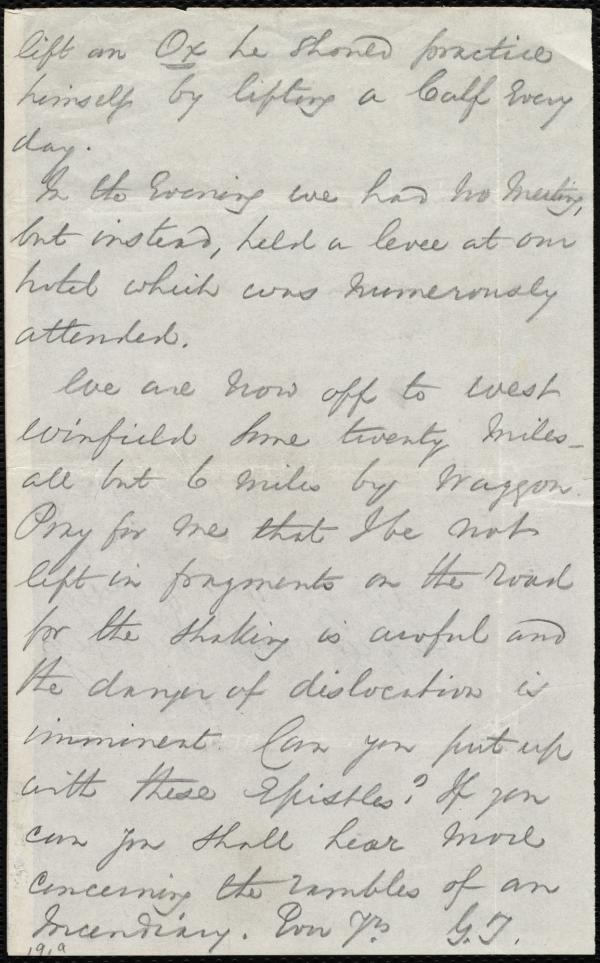 lift an Ox he should practice
himself by lifting a Calf Every
day.
In the Evening we had no Meeting,
but instead, held a levee at our
hotel which was numerously
attended.
We are now off to West
Winfield Some twenty Miles_
all but 6 miles by Waggon.
Pray for me that I be not
left in fragments on the road
for the shaking is awful and
the danger of dislocation is
imminent. Can you put up
with these Epistles? If you
can you shall hear more
concerning the rambles of an
Incendiary. Ever Yrs G.T.
19,9